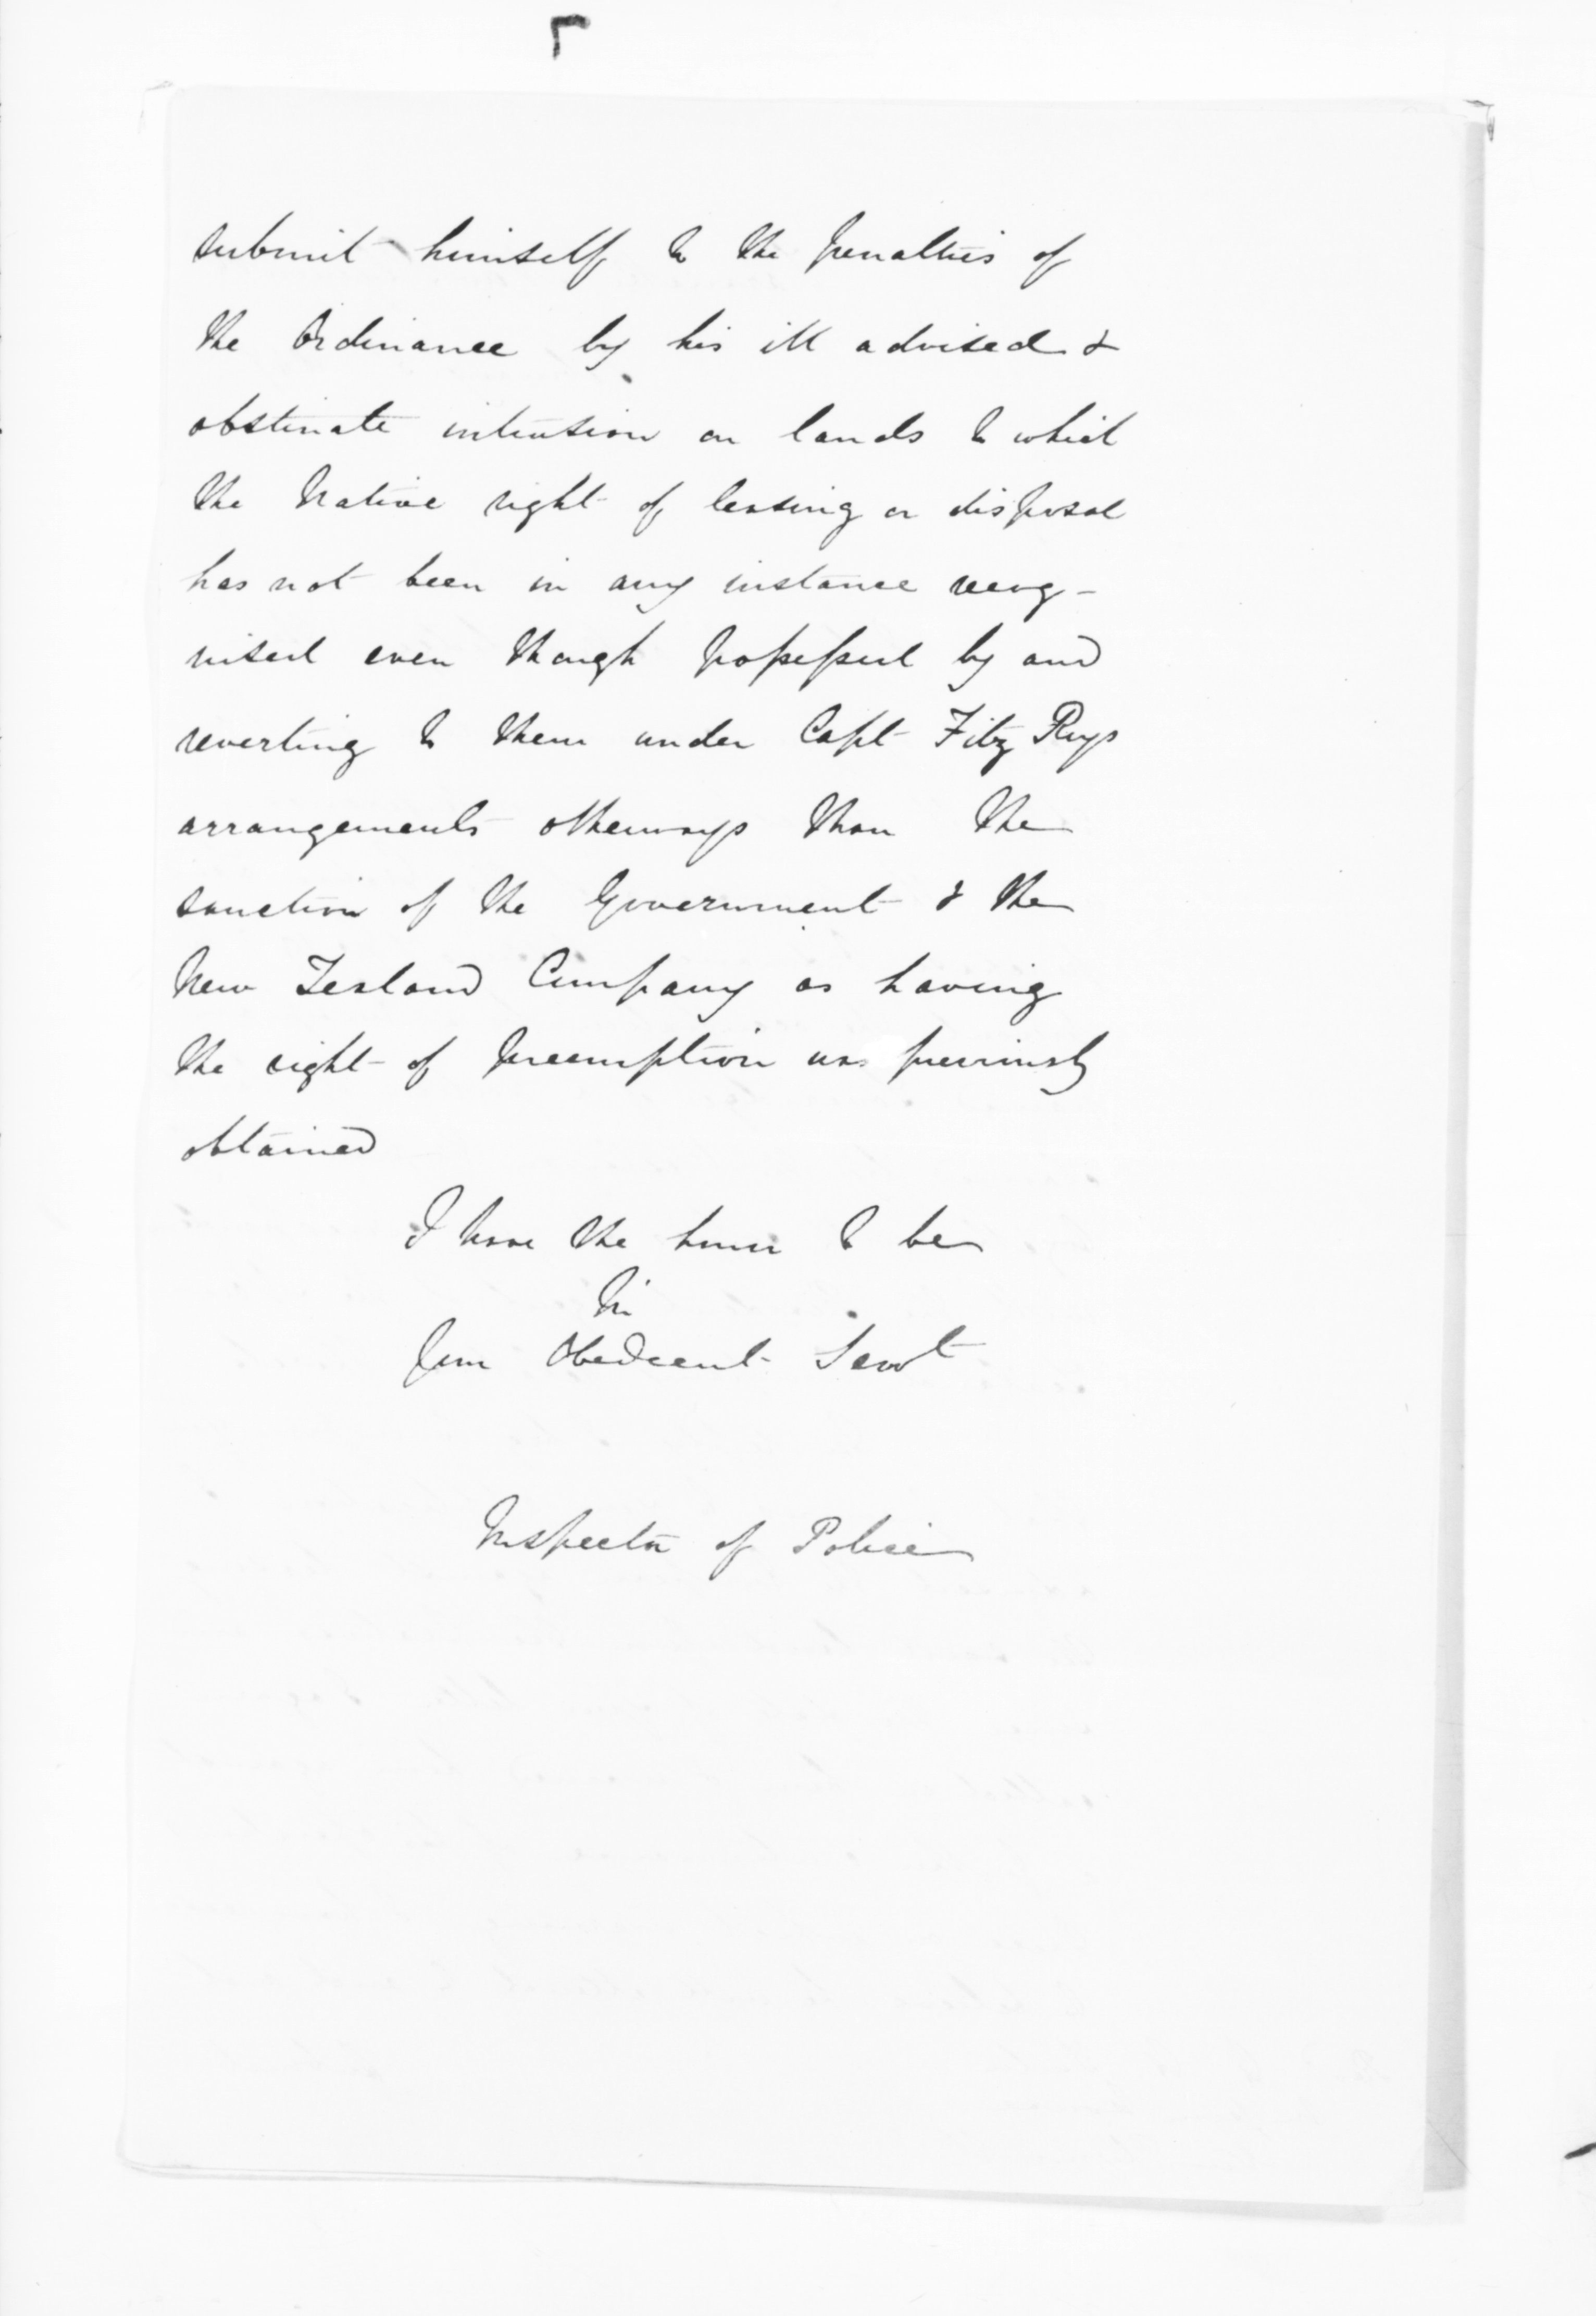 submit himself to the penalties of
the Ordinance by his ill advised &
obstinate intrusion on lands to which
the Native right of leasing or disposal
has not been in any instance recog-
nised even though possessed by and
reverting to them under Capt Fitz Roys
arrangements otherways than the
sanction of the Government & the
New Zealand Company as having
the right of preemption was previously
obtained
I have the honor to be
Sir
Your Obedient Servt
Inspector of Police